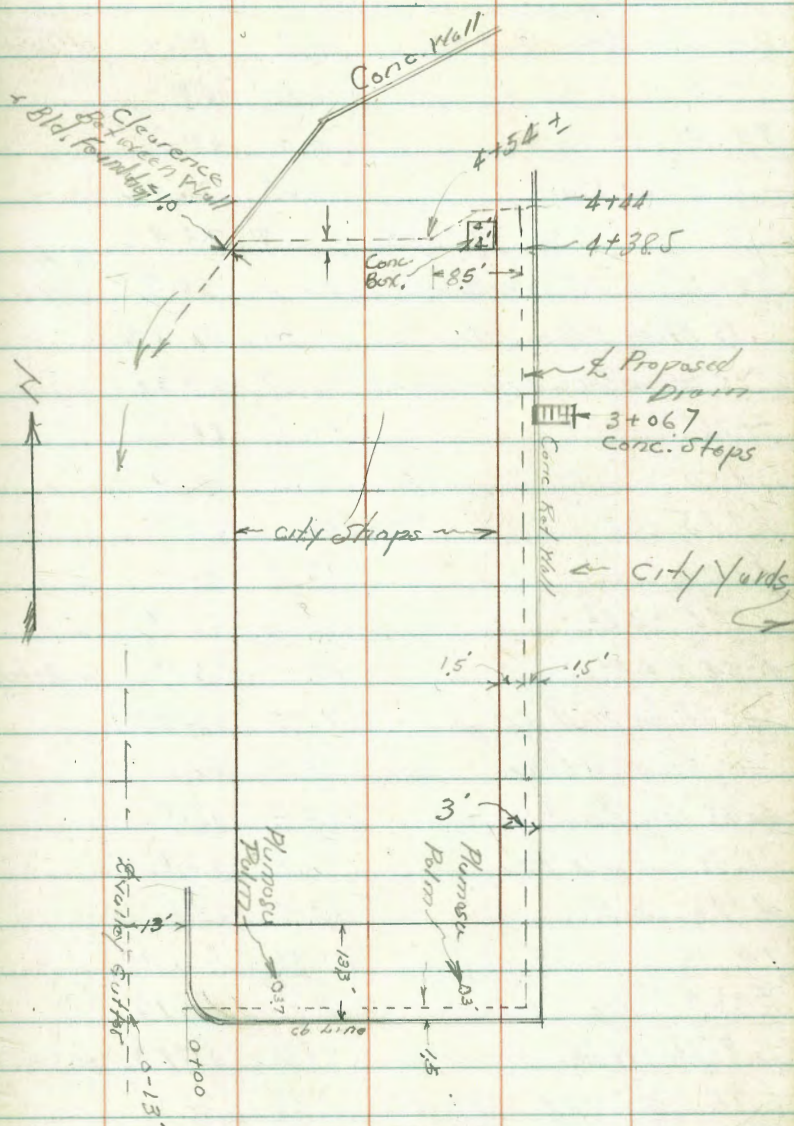 Conc. Wall
Clearence
Between Wall
+ Bld. Foundation
1.0
4+54 ±
4+44
4+38.5
4'
4'
Conc.
Box.
8.5'
℄ Proposed
Drain
3+067
Conc. Steps
N
Conc Ret Wall
City Shops
City Yards
1.5'
1.5'
3'
Plumosa
Palm
0.37
Plumosa
Palm
0.3'
13'
13.3'
℄ Valley Gutter
0-13'
0+00
cb line
1.5